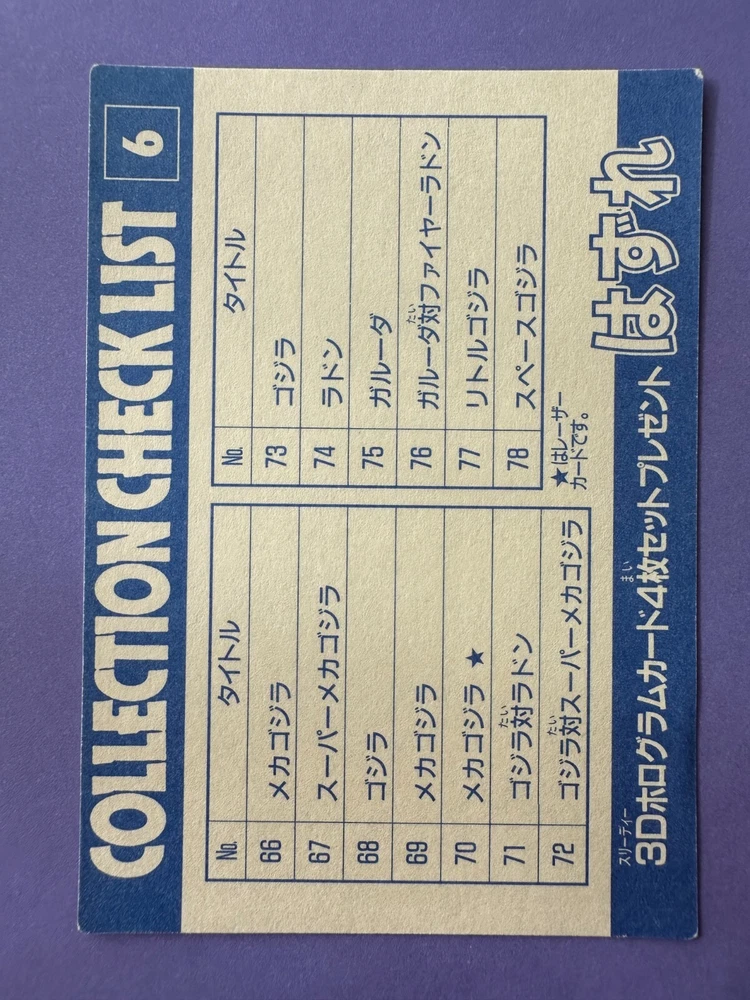 COLLECTION CHECK LIST 6
No. タイトル
66 メカゴジラ
67 スーパーメカゴジラ
68 ゴジラ
69 メカゴジラ
70 メカゴジラ★
71 ゴジラ対ラドン
たい
72 ゴジラ対スーパーメカゴジラ
たい
No. タイトル
73 ゴジラ
74 ラドン
75 ガルーダ
76 ガルーダ対ファイヤーラドン
たい
77 リトルゴジラ
78 スペースゴジラ
★はレーザー
カードです。
スリーディー
まい
3Dホログラムカード4枚セットプレゼント
はずれ